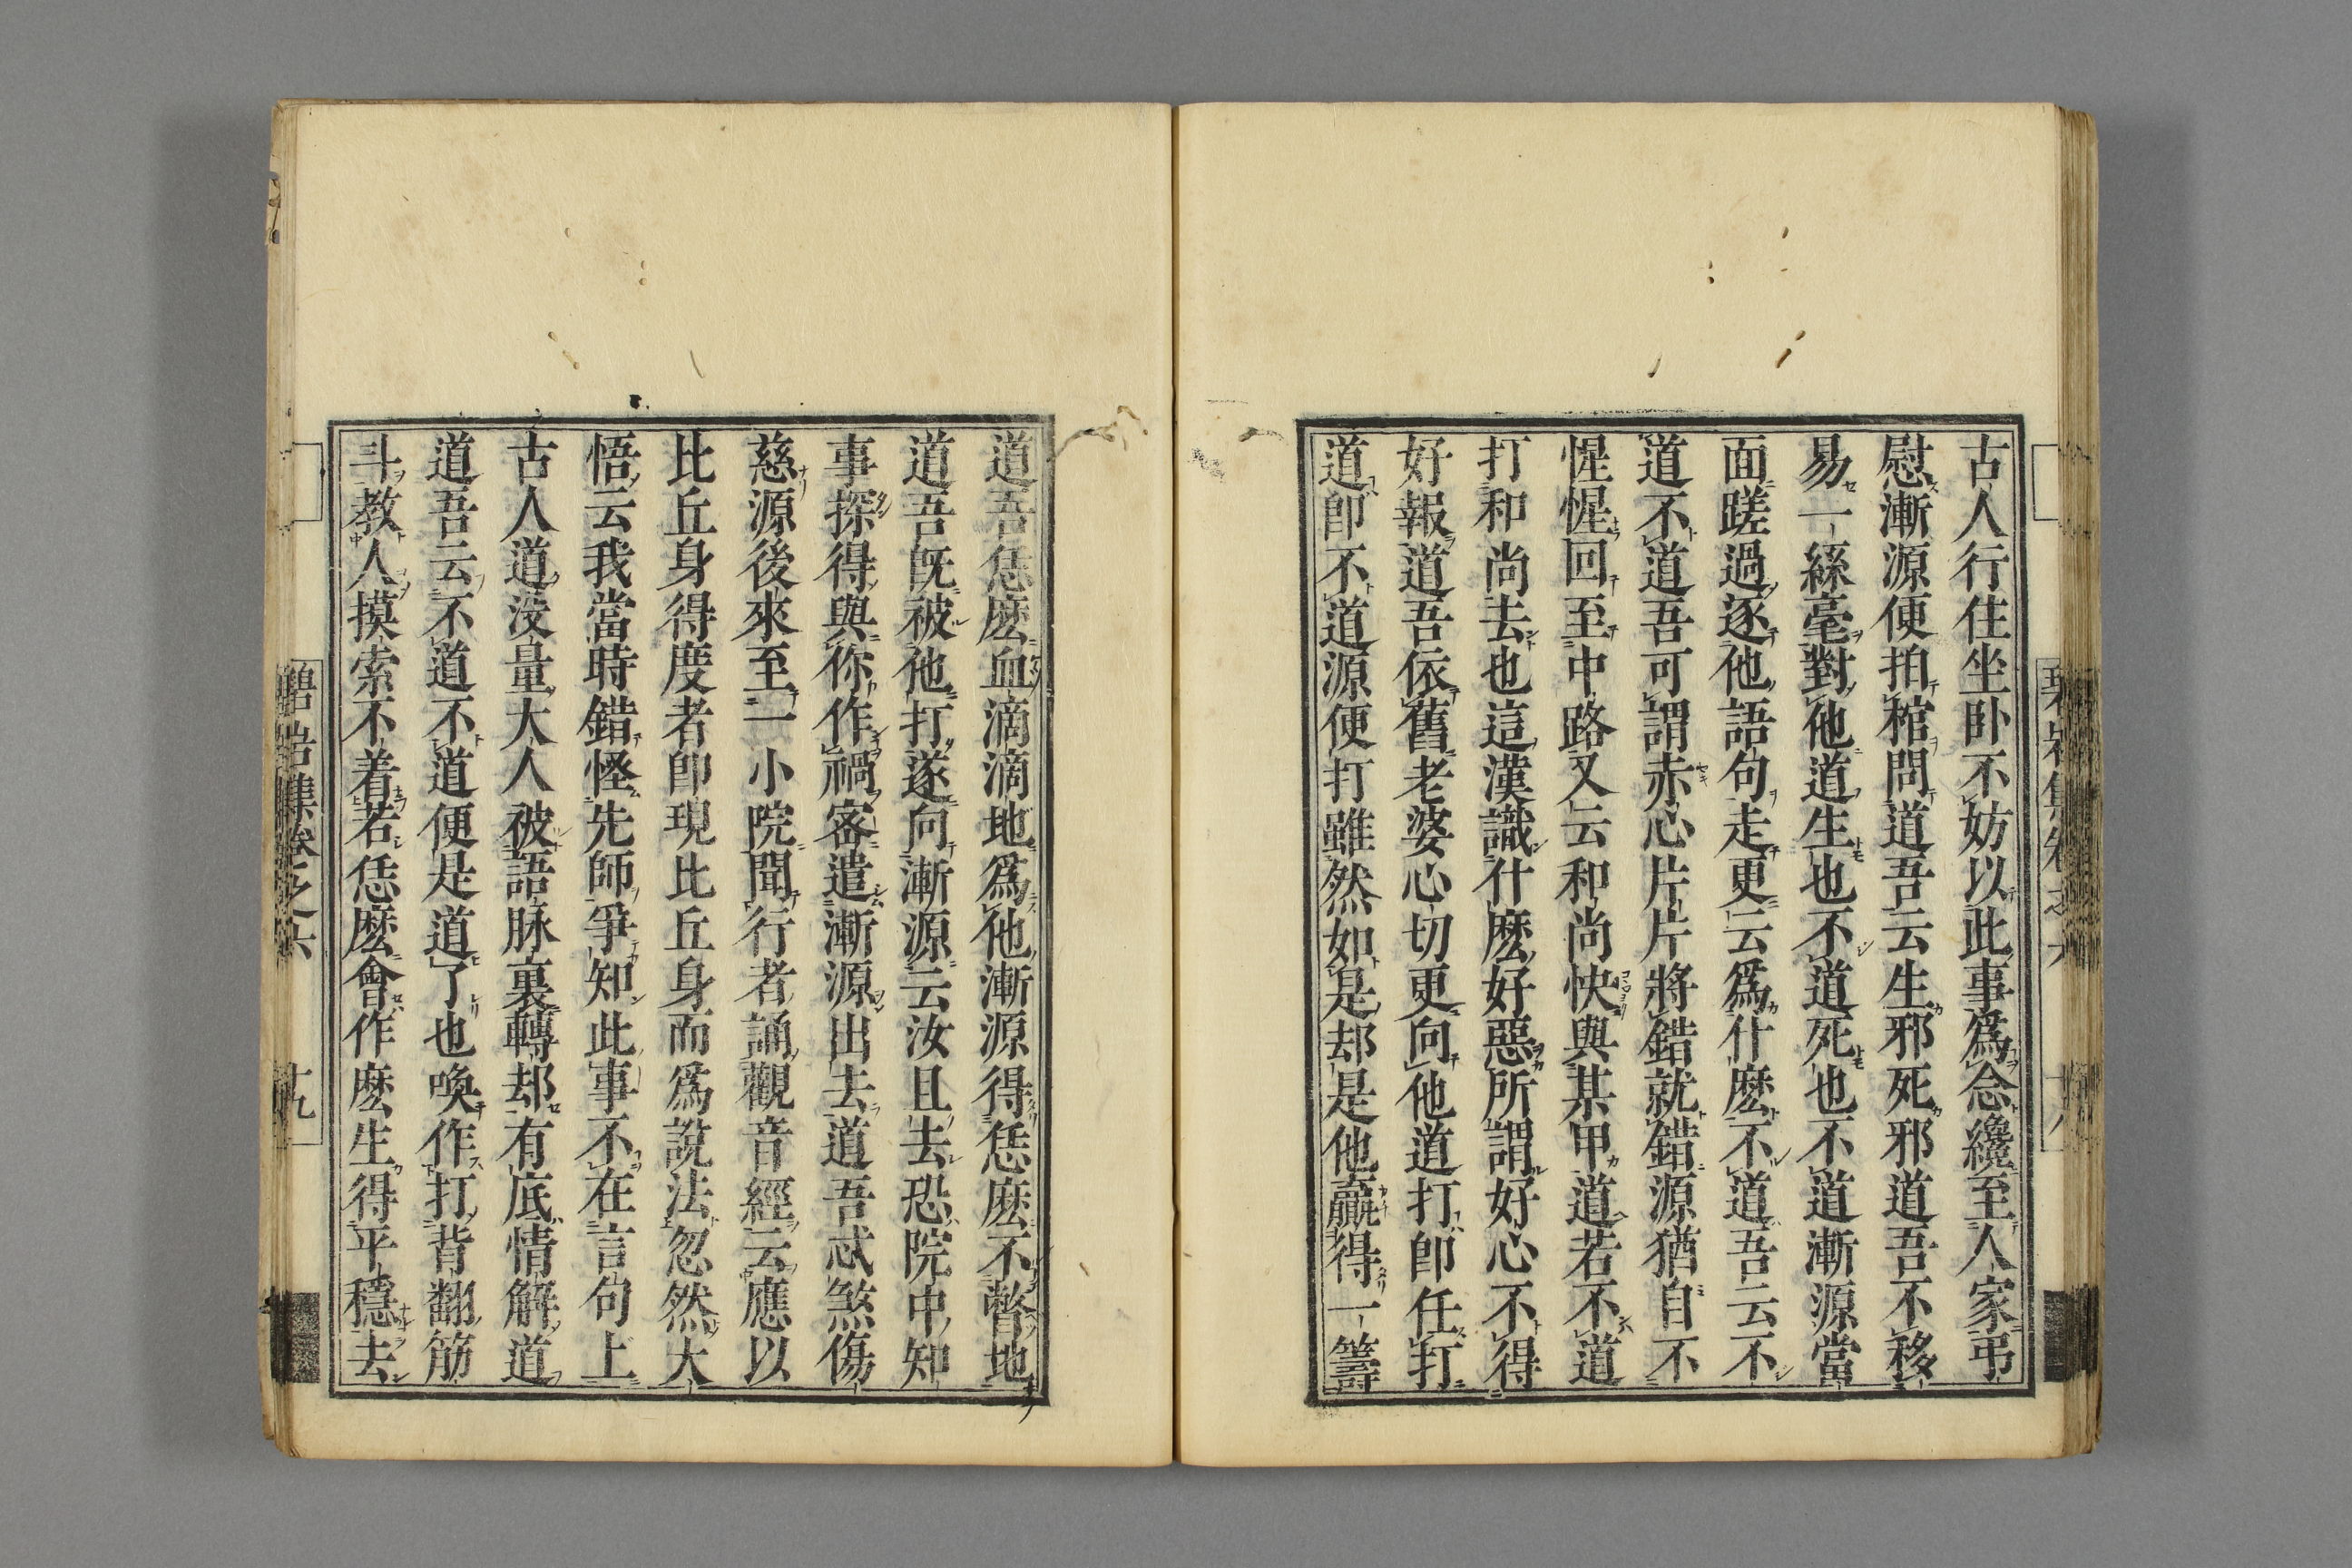 古人行住坐臥不妨以此事爲念纔至人家弔
慰漸源便拍棺問道吾云生邪死邪道吾不移
易一絲毫對他道生也不道死也不道漸源當
面蹉過逐他語句走更云爲什麼不道吾云不
道不道吾可謂赤心片片將錯就錯源猶自不
惺惺回至中路又云和尚快與某甲道若不道
打和尚去也這漢識什麼好惡所謂好心不得
好報道吾依舊老婆心切更向他道打即任打
道即不道源便打雖然如是却是他贏得一籌
道吾恁麼血滴滴地爲他漸源得恁麼不瞥地
道吾既被他打遂向漸源云汝且去恐院中知
事探得與你作禍密遣漸源出去道吾忒煞傷
慈源後來至一小院聞行者誦觀音經云應以
比丘身得度者即現比丘身而爲說法忽然大
悟云我當時錯怪先師爭知此事不在言句上
古人道沒量大人被語脉裏轉却有底情解道
道吾云不道不道便是道了也喚作打背翻筋
斗教人摸索不着若恁麼會作麼生得平穩去
碧岩集卷之六
十九